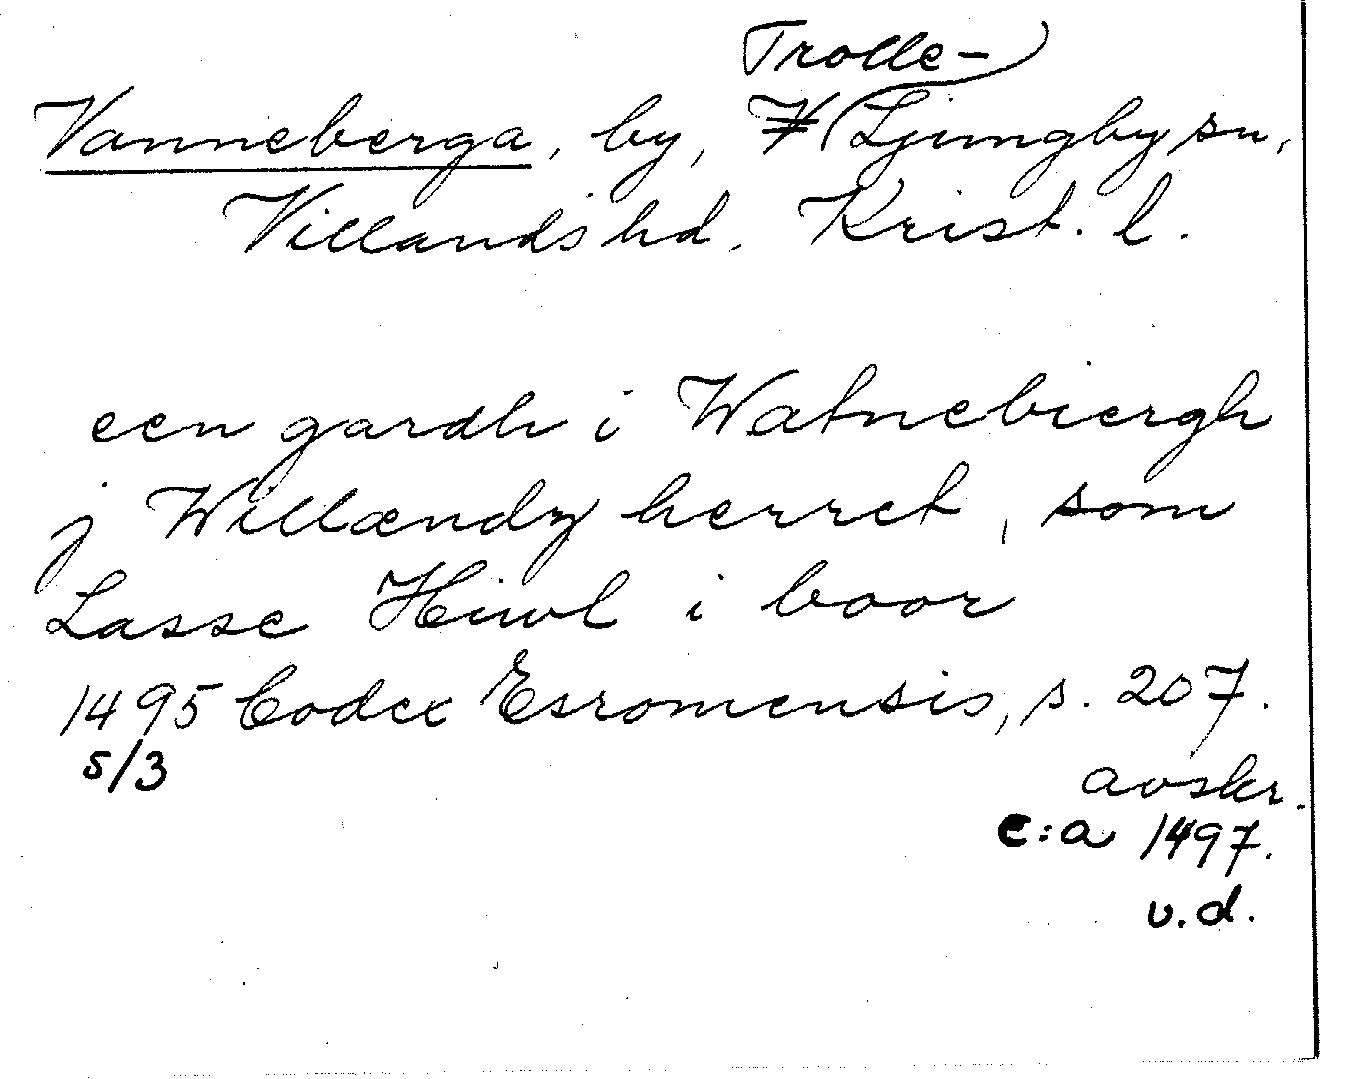 Trolle-
Vanneberga, by, Ljungby sn,
Villands hd. Krist. l.
een gardh i Watnebiergh
j Willændz herret, som
Lasse Hiwl i boor
1495 Codex Esromensis, s. 207.
5/3
avskr.
c:a 1497.
v.d.